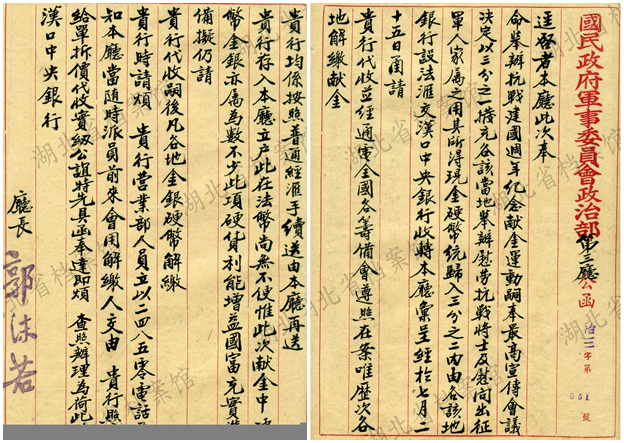 國民政府軍事委員會政治部第三廳公函
治三字第 851 號
逕啓者本廳此次奉
命舉辦抗戰建國週年紀念献金運動嗣奉最高宣傳會議
決定以三分之一撥充各該當地舉辦慰劳抗戰將士及慰问出征
軍人家属之用其所得現金硬幣統歸入三分之二内由各該地
銀行設法滙交漢口中央銀行收轉本廳彙呈經於七月二
十五日函請
貴行代收並經通電全國各籌備會遵照在案唯歷次各
地解繳献金
貴行均係按照普通經滙手續送由本廳再送
貴行存入本廳立户此在法幣尚無不便惟此次献金中
幣金銀亦属為數不少此項硬貨利能增益國富充實
備擬仍請
貴行代收嗣後凡各地金銀硬幣解繳
貴行時請煩 貴行营業部人員立以二四八五零電話
知本廳當随時派員前來會同解繳人交由 貴行照
給單折價代收實紉公誼特先具函奉達即煩 查照辦理為荷此
漢口中央銀行
廳長 郭沫若
湖北省档案馆